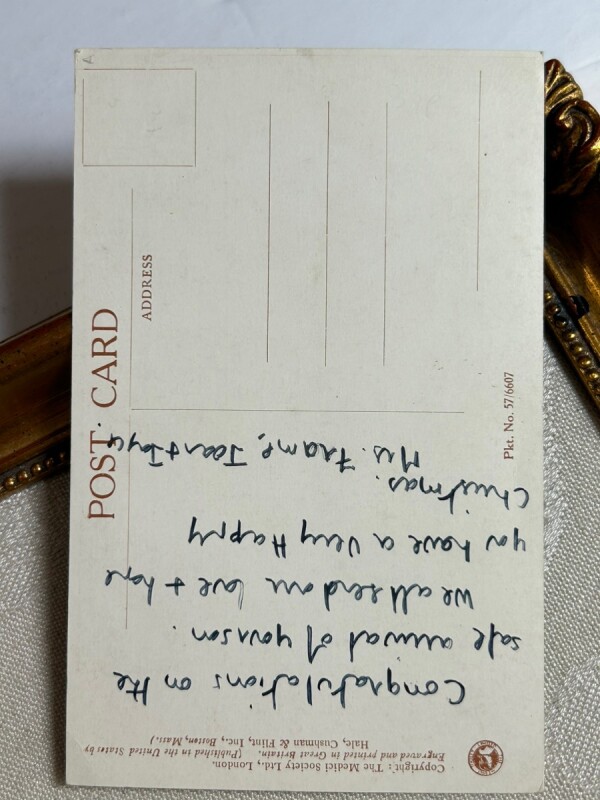 Congratulations on the
safe arrival of your son.
We all send our love + hope
you have a very Happy
Christmas.
Mrs. Frame, Joan + Joyce
POST CARD
ADDRESS
Pkt. No. 57/6607
Copyright: The Medici Society Ltd., London.
Engraved and printed in Great Britain. (Published in the United States by
Hale, Cushman & Flint, Inc., Boston, Mass.)